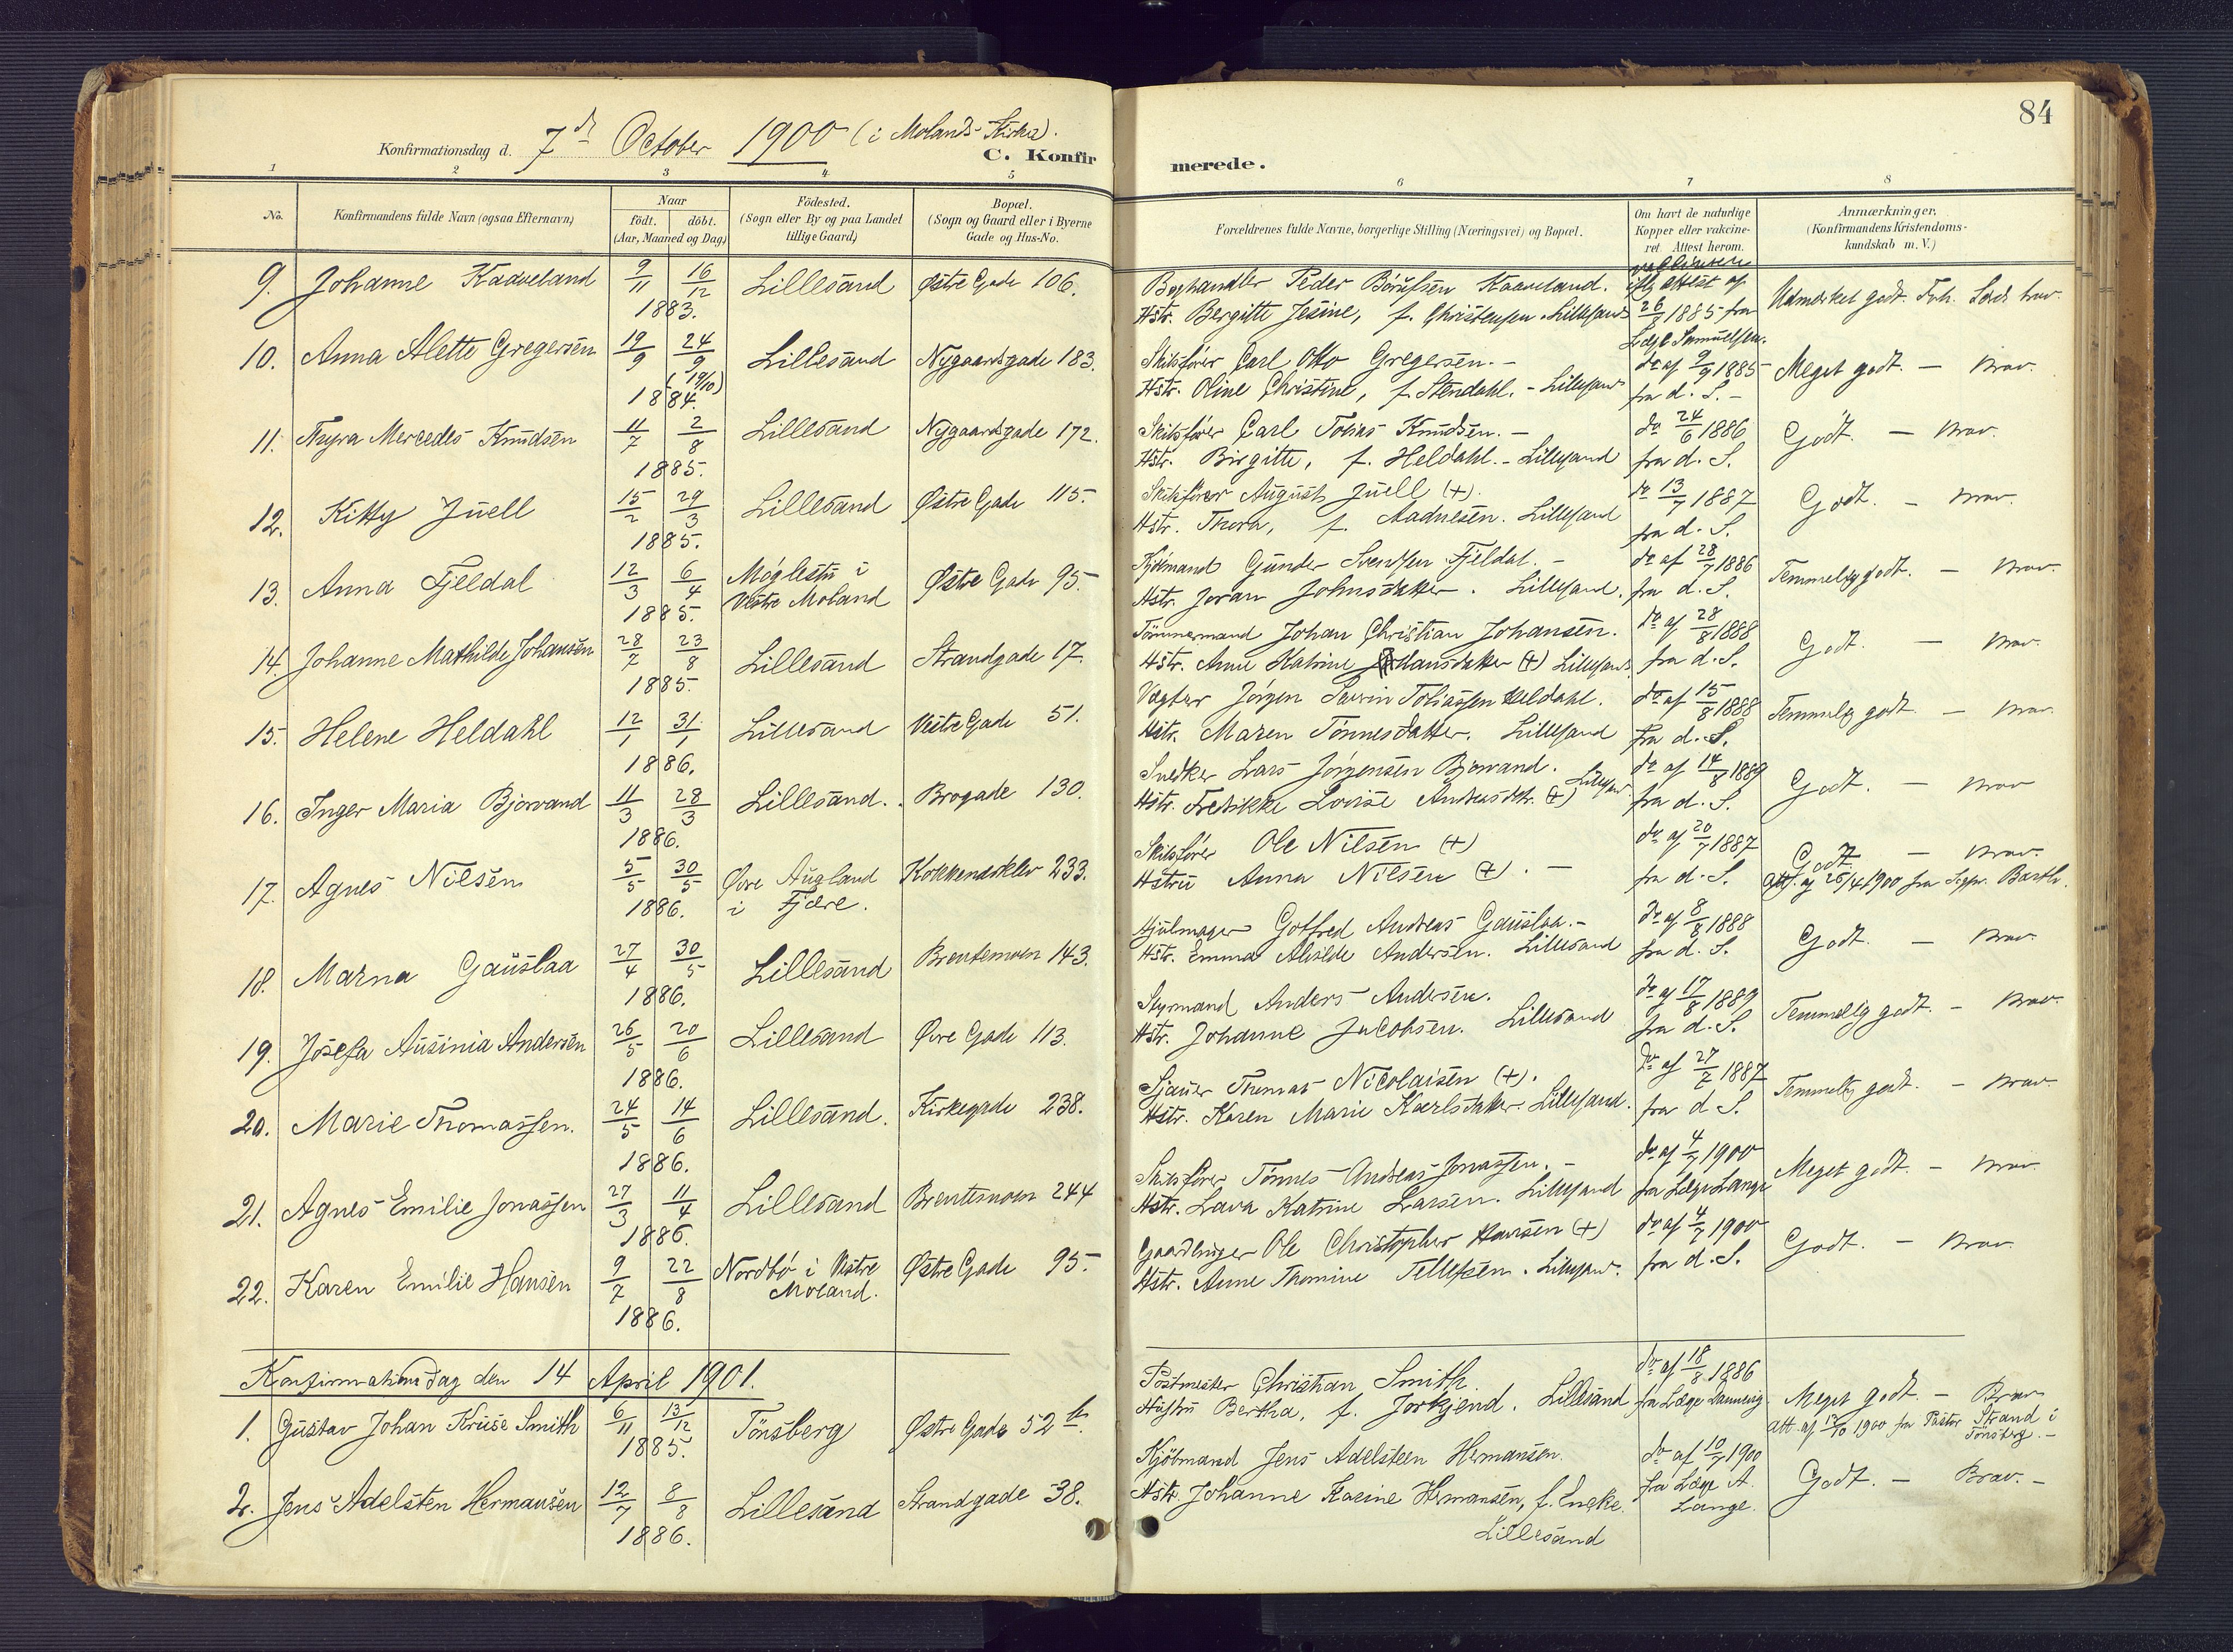 84
Konfirmationsdag d. 7de October 1900 (i Molands Kirke).
C. Konfirmerede.
1 2 3 4 5 6 7 8
No.
Konfirmandens fulde Navn (ogsaa Efternavn)
Naar
födt. döbt.
(Aar, Maaned og Dag)
Födested.
(Sogn eller By og paa Landet
tillige Gaard)
Bopæl.
(Sogn og Gaard eller i Byerne
Gade og Hus-No.
Forældrenes fulde Navne, borgerlige Stilling (Næringsvei) og Bopæl.
Om havt de naturlige
Kopper eller vakcine-
ret. Attest herom.
Anmærkninger.
(Konfirmandens Kristendoms-
kundskab m. V.)
9. Johanne Kaaveland 9/11 16/12 1883. Lillesand Østre Gade 106.
Boghandler Peder Kaaveland.
Hstr. Bergitte Jesine, f. Christensen. Lillesand
attest af 1885 fra
Læge Samuelsen.
Udmærket godt.
10. Anna Alette Gregersen 19/9 24/9 (19/10) 1884. Lillesand Nygaardsgade 183.
Skibsfører Carl Otto Gregersen. -
Hstr. Oline Christine, f. Stendahl. - Lillesand
do af 9/9 1885
fra d. S. -
Meget godt. - Brav.
11. Thyra Mercedes Knudsen 11/7 2/8 1885. Lillesand Nygaardsgade 172.
Skibsfører Carl Tobias Knudsen. -
Hstr. Birgitte, f. Heldahl. - Lillesand
do 24/6 1886
fra d. S.
Godt. - Brav.
12. Kitty Juell 15/2 29/3 1885. Lillesand Østre Gade 115.
Skibsfører August Juell (+).
Hstr. Thora, f. Aadnesen. Lillesand
do 13/7 1887
fra d. S.
Godt. - Brav.
13. Anna Fjeldal 12/3 6/4 1885. Møglestu i
Vestre Moland Østre Gade 95.
Kjømand Gunder Svendsen Fjeldal. -
Hstr. Joran Johnsdatter. Lillesand.
do af 28/7 1886
fra d. S.
Temmelig godt. - Brav.
14. Johanne Mathilde Johansen 28/7 23/8 1885. Lillesand Strandgade 17.
Tømmermand Johan Christian Johansen.
Hstr. Anne Katrine Hansdatter (+) Lillesand.
do af 28/8 1888
fra d. S.
Godt. - Brav.
15. Helene Heldahl 12/1 31/1 1886. Lillesand Vestre Gade 51.
Vægter Jørgen Severin Tobiassen Heldahl.
Hstr. Maren Tønnesdatter. Lillesand
do af 15/8 1888
fra d. S.
Temmelig godt. - Brav.
16. Inger Maria Bjorvand 11/3 28/3 1886. Lillesand. Brogade 130.
Snedker Lars Jørgensen Bjorvand.
Hstr. Fredrikke Lovise Andreasdtr. (+) Lillesand.
do af 14/8 1889
fra d. S.
Godt. - Brav
17. Agnes Nilsen 5/5 30/5 1886. Øvre Augland
i Fjære. Kokkensklev 233.
Skibsfører Ole Nilsen (+)
Hstru Anna Nilsen (+). -
do af 20/7 1887
fra d. S.
Godt. - Brav.
Att. af 26/4 1900 fra Sogpr. Barth.
18. Marna Gauslaa 27/4 30/5 1886. Lillesand Brentemoen 143.
Hjulmager Gotfred Andreas Gauslaa. -
Hstr. Emma Alvilde Andersen. Lillesand
do af 8/8 1888
fra d. S.
Godt. - Brav.
19. Josefa Ausinia Andersen 26/5 20/6 1886. Lillesand Øvre Gade 113.
Styrmand Anders Andersen.
Hstr. Johanne Jacobsen. Lillesand
do af 17/8 1889
fra d. S.
Temmelig godt. - Brav.
20. Marie Thomassen. 24/5 14/6 1886. Lillesand. Kirkegade 238.
Sjauer Thomas Nicolaisen (+).
Hstr. Karen Marie Karlsdatter. Lillesand.
do af 27/7 1887
fra d. S.
Temmelig godt. - Brav.
21. Agnes Emilie Jonassen 27/3 11/4 1886. Lillesand Brentemoen 244
Skibsfører Tønnes Andreas Jonassen. -
Hstr. Lava Katrine Larsen. Lillesand
do af 4/7 1900
fra Læge Lange
Meget godt. - Brav.
22. Karen Emilie Hansen 9/7 22/8 1886. Nordbø i Vestre
Moland. Østre Gade 95.
Gaardbruger Ole Christopher Hansen (+)
Hstr. Anne Thomine Tellefsen. Lillesand.
do af 4/7 1900
fra d. S.
Godt. - Brav.
Konfirmationsdag den 14 April 1901.
1. Gustav Johan Kruse Smith 6/11 13/12 1885. Tønsberg Østre Gade 52 b.
Postmester Christian Smith.
Hustru Bertha, f. Jorkjend. Lillesand
do af 18/8 1886
fra Læge
Meget godt. - Brav
Att. af 1900 fra Pastor Strand i
Tønsberg. -
2. Jens Adelsten Hermansen 12/7 8/8 1886. Lillesand Strandgade 38.
Kjøbmand Jens Adelsteen Hermansen.
Hstr. Johanne Karine Hermansen, f. Encke.
Lillesand
do af 10/7 1900
fra Læge A.
Lange.
Godt. - Brav. -